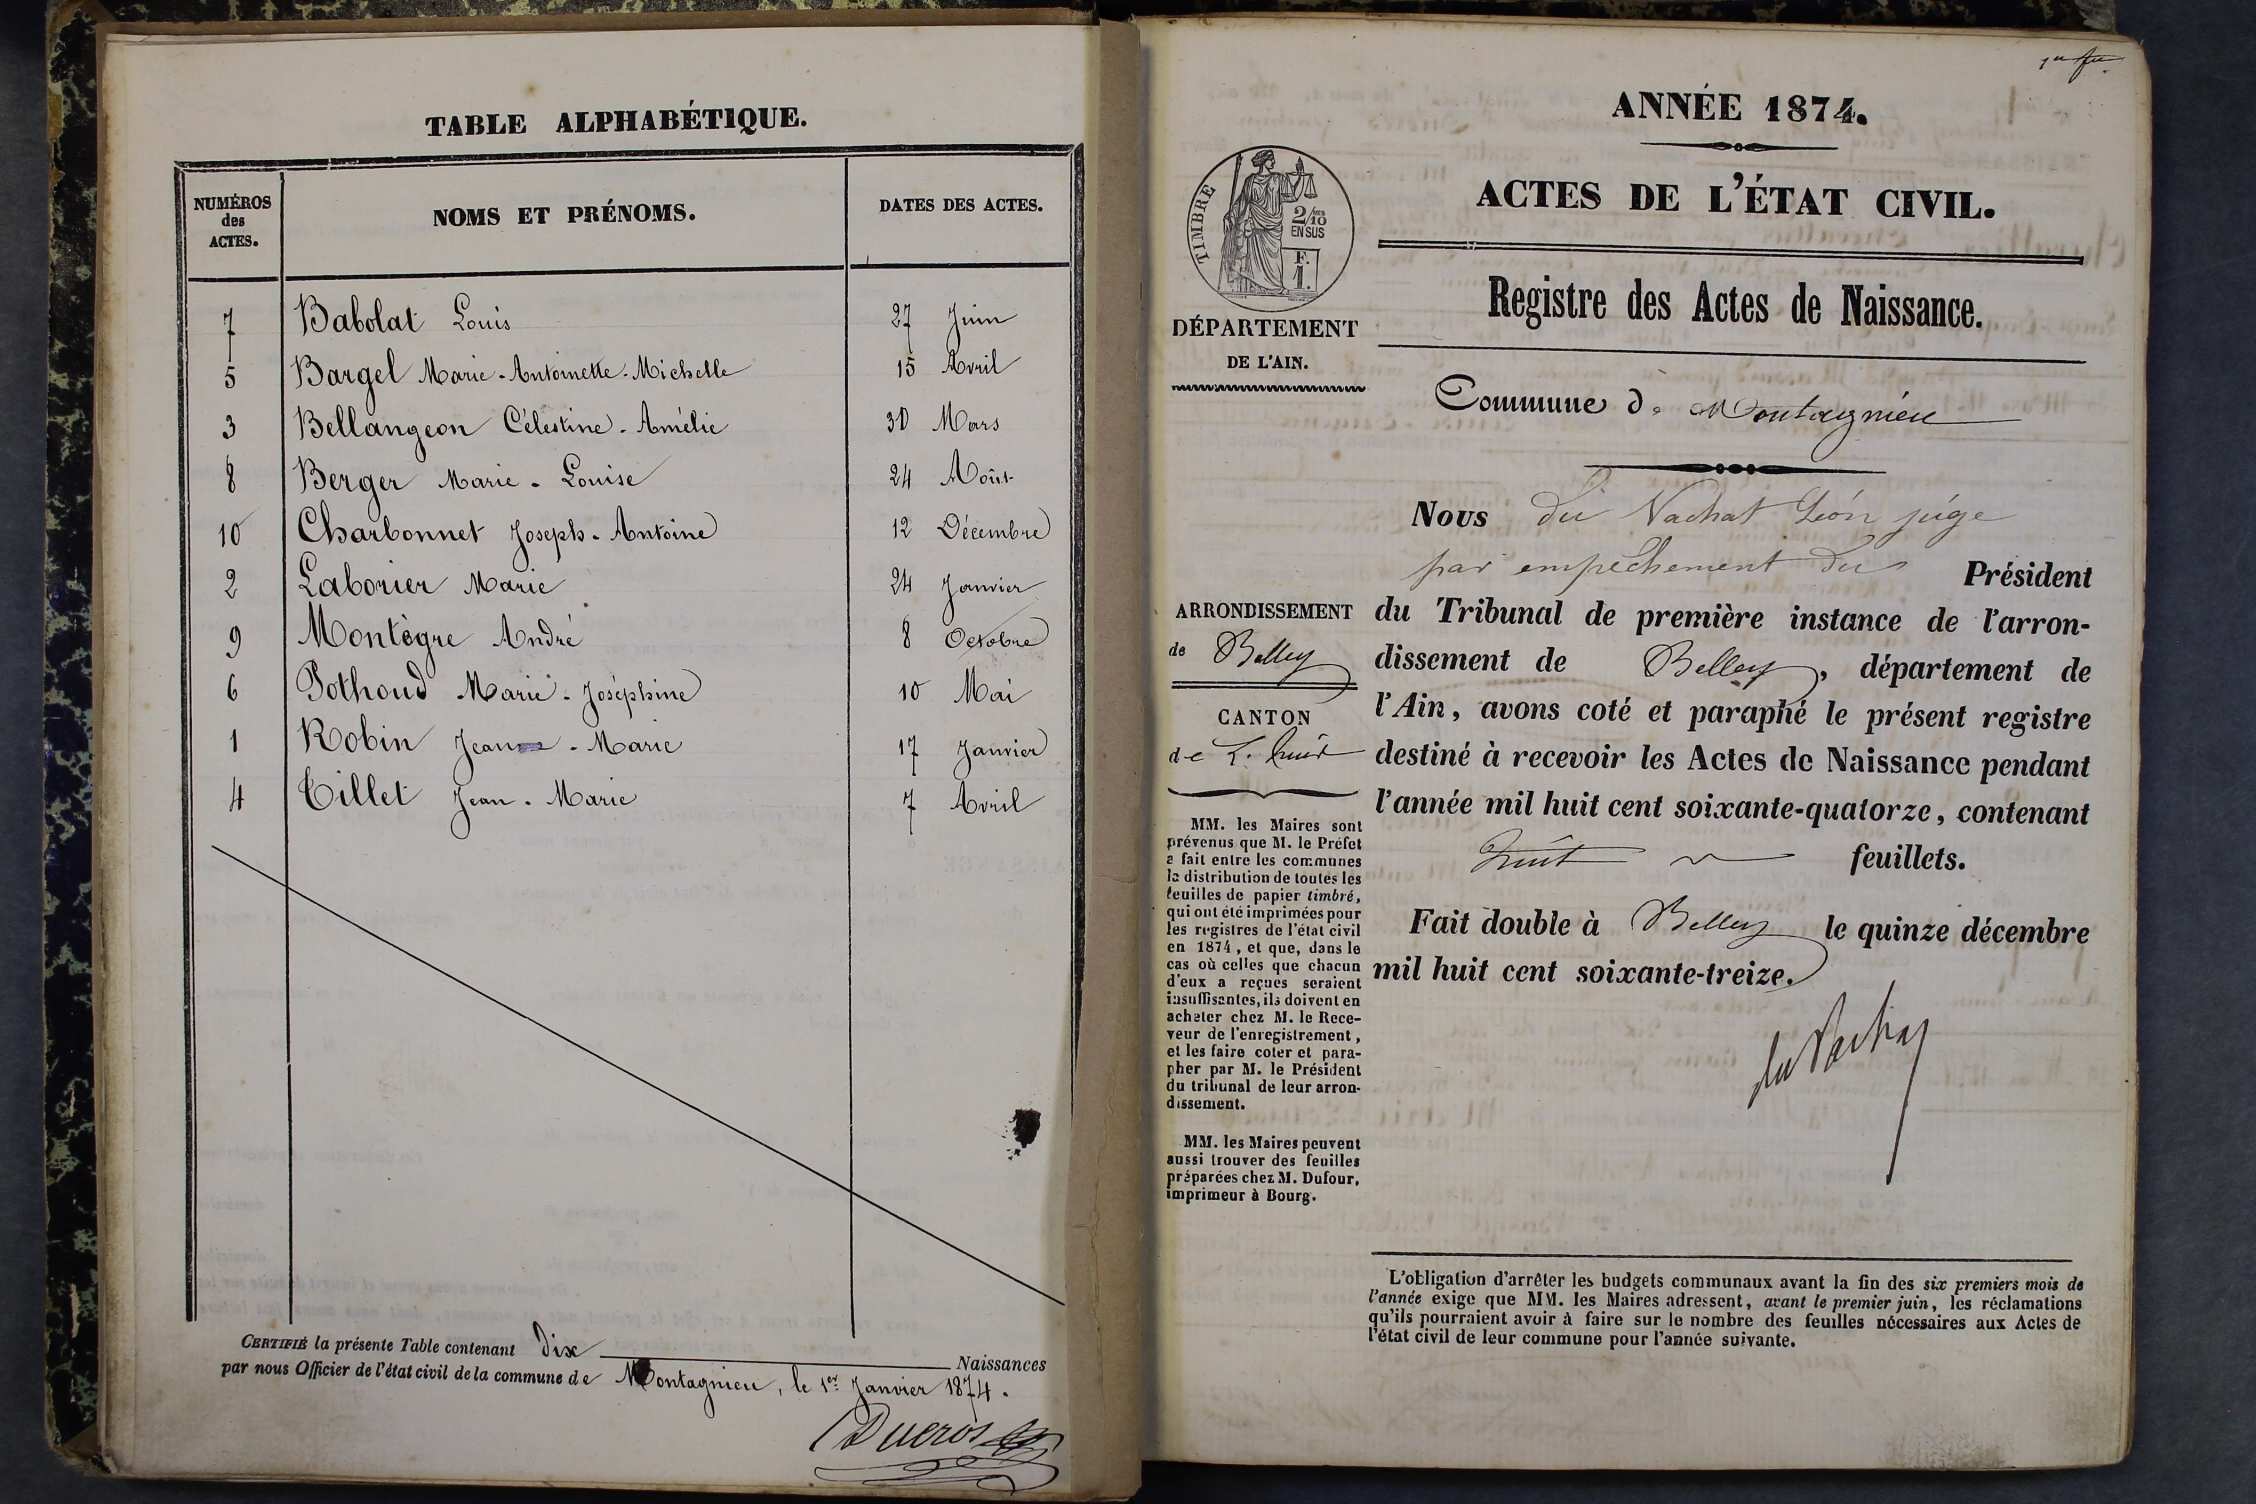 TABLE ALPHABÉTIQUE.
NUMÉROS des ACTES.
NOMS ET PRÉNOMS.
DATES DES ACTES.
7 Babolat Louis 27 Juin
5 Bargel Marie-Antoinette-Michelle 15 Avril
3 Bellangeon Célestine-Amélie 30 Mars
8 Berger Marie-Louise 24 Août
10 Charbonnet Joseph-Antoine 12 Décembre
2 Laborier Marie 24 Janvier
9 Montègre André 8 Octobre
6 Pothoud Marie-Joséphine 10 Mai
1 Robin Jeanne-Marie 17 Janvier
4 Tillet Jean-Marie 7 Avril
CERTIFIÉ la présente Table contenant dix Naissances
par nous Officier de l'état civil de la commune de Montagnieu, le 1er Janvier 1874.
Ducros
ANNÉE 1874.
ACTES DE L'ÉTAT CIVIL.
TIMBRE
2/10
EN SUS
F.
1.
DÉPARTEMENT
DE L'AIN.
Registre des Actes de Naissance.
Commune de Montagnieu
Nous du Vachat Léon juge
par empêchement du Président
du Tribunal de première instance de l'arron-
dissement de Belley, département de
l'Ain, avons coté et paraphé le présent registre
destiné à recevoir les Actes de Naissance pendant
l'année mil huit cent soixante-quatorze, contenant
huit feuillets.
Fait double à Belley le quinze décembre
mil huit cent soixante-treize.
du Vachat
ARRONDISSEMENT
de Belley
CANTON
de L'huis
MM. les Maires sont
prévenus que M. le Préfet
a fait entre les communes
la distribution de toutes les
feuilles de papier timbré,
qui ont été imprimées pour
les registres de l'état civil
en 1874, et que, dans le
cas où celles que chacun
d'eux a reçues seraient
insuffisantes, ils doivent en
acheter chez M. le Rece-
veur de l'enregistrement,
et les faire coter et para-
pher par M. le Président
du tribunal de leur arron-
dissement.
MM. les Maires peuvent
aussi trouver des feuilles
préparées chez M. Dufour,
imprimeur à Bourg.
L'obligation d'arrêter les budgets communaux avant la fin des six premiers mois de
l'année exige que MM. les Maires adressent, avant le premier juin, les réclamations
qu'ils pourraient avoir à faire sur le nombre des feuilles nécessaires aux Actes de
l'état civil de leur commune pour l'année suivante.